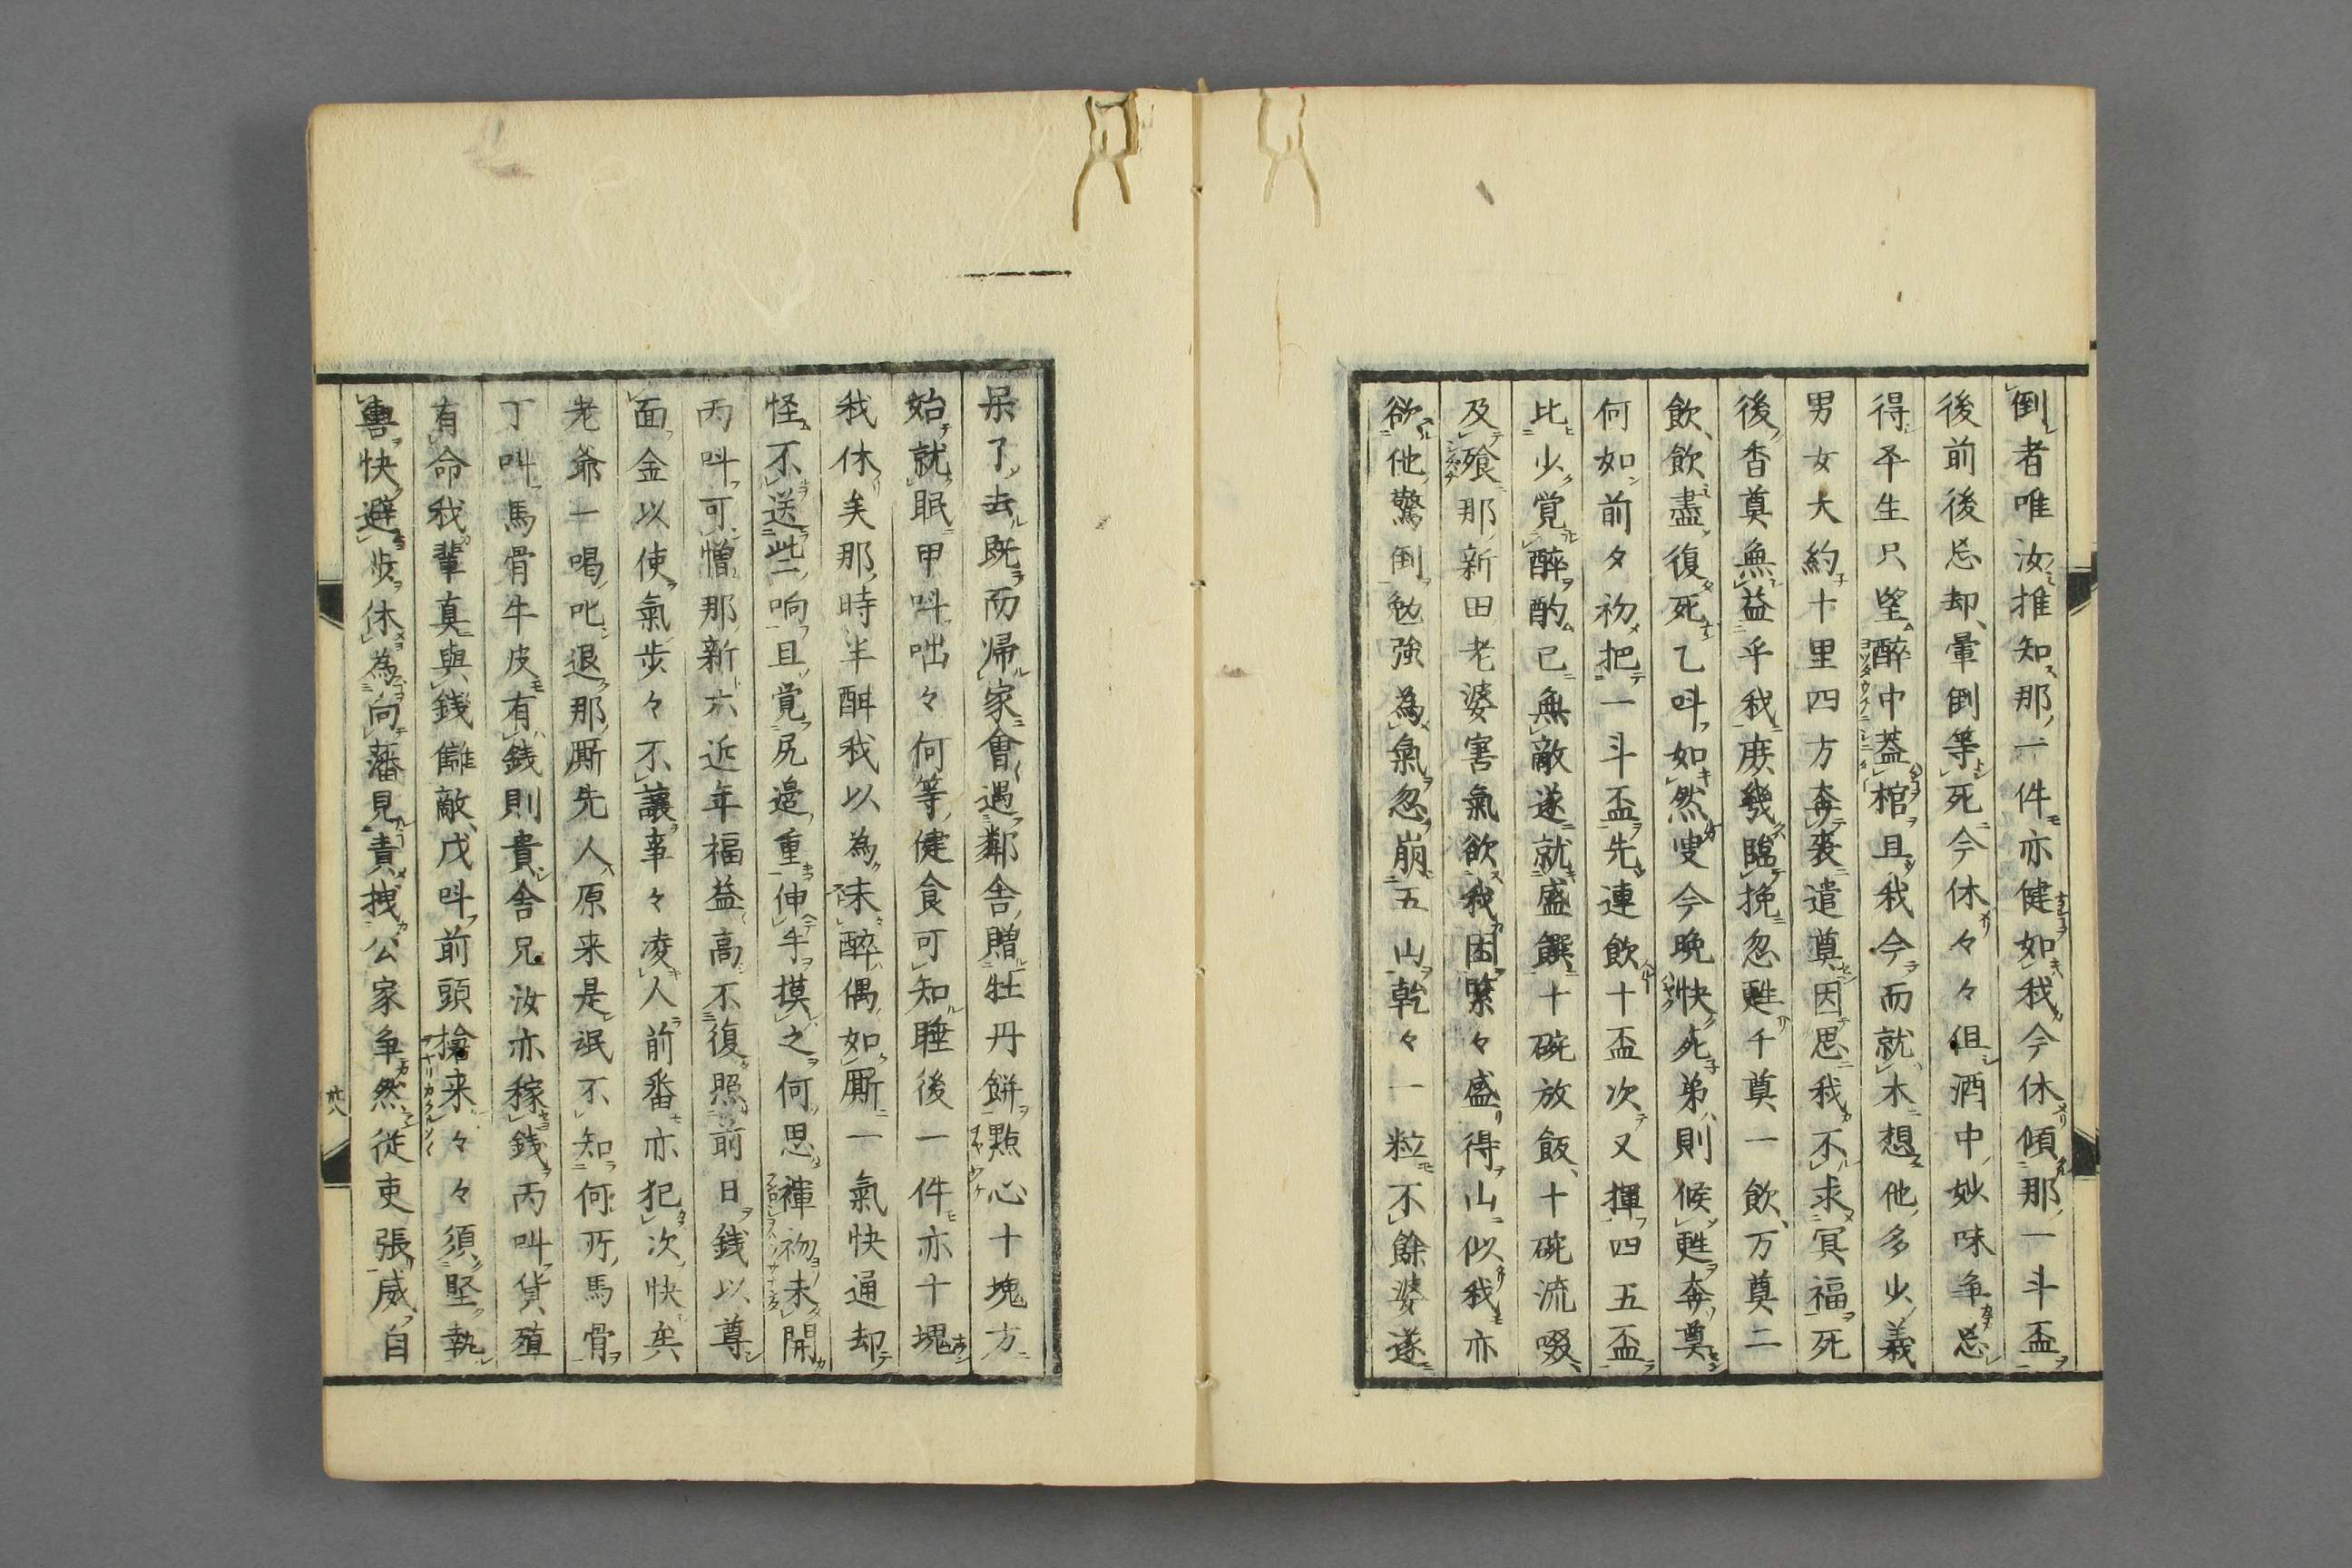 倒者唯汝推知那一件亦健如我今休傾那一斗盃
後前後忘却暈倒等死今休々々但酒中妙味争忘
得平生只望醉中蓋棺且我今而就木想他多少義
男女大約十里四方奔喪遣奠因思我不求冥福死
後香奠無益乎我庶幾臨挽忽甦千奠一飲万奠二
飲飲盡復死乙呌如然叟今晩快死弟則候甦奔奠
何如前夕初把一斗盃先連飲十盃次又揮四五盃
比少覚醉酌已無敵遂就盛饌十碗放飯十碗流啜
及飱那新田老婆害氣欲我困繁々盛得山似我亦
欲他驚倒勉強為氣忽崩五山乾々一粒不餘婆遂
呆了去既而帰家會遇鄰舎贈牡丹餅點心十塊方
始就眠甲呌咄々何等健食可知睡後一件亦十塊
我休矣那時半酣我以為未醉偶如厮一氣快通却
怪不送些响且覚尻邉重伸手摸之何思褌初未開
丙呌可憎那新六近年福益高不復照前日銭以尊
面金以使氣歩々不譲辜々凌人前番亦犯次快矣
老爺一喝叱退那厮先人原来是氓不知何所馬骨
丁呌馬骨牛皮有銭則貴舎兄汝亦稼銭丙呌貨殖
有命我輩真與銭讎敵戊呌前頭搶来々々須堅執
轡快避歩休為向藩見責拽公家争然従吏張威自